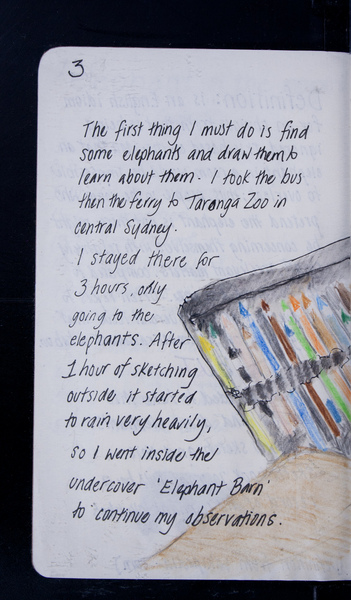 3
The first thing I must do is find
some elephants and draw them to
learn about them. I took the bus
then the ferry to Taronga Zoo in
central Sydney.
I stayed there for
3 hours, only
going to the
elephants. After
1 hour of sketching
outside it started
to rain very heavily,
so I went inside the
undercover 'Elephant Barn'
to continue my observations.